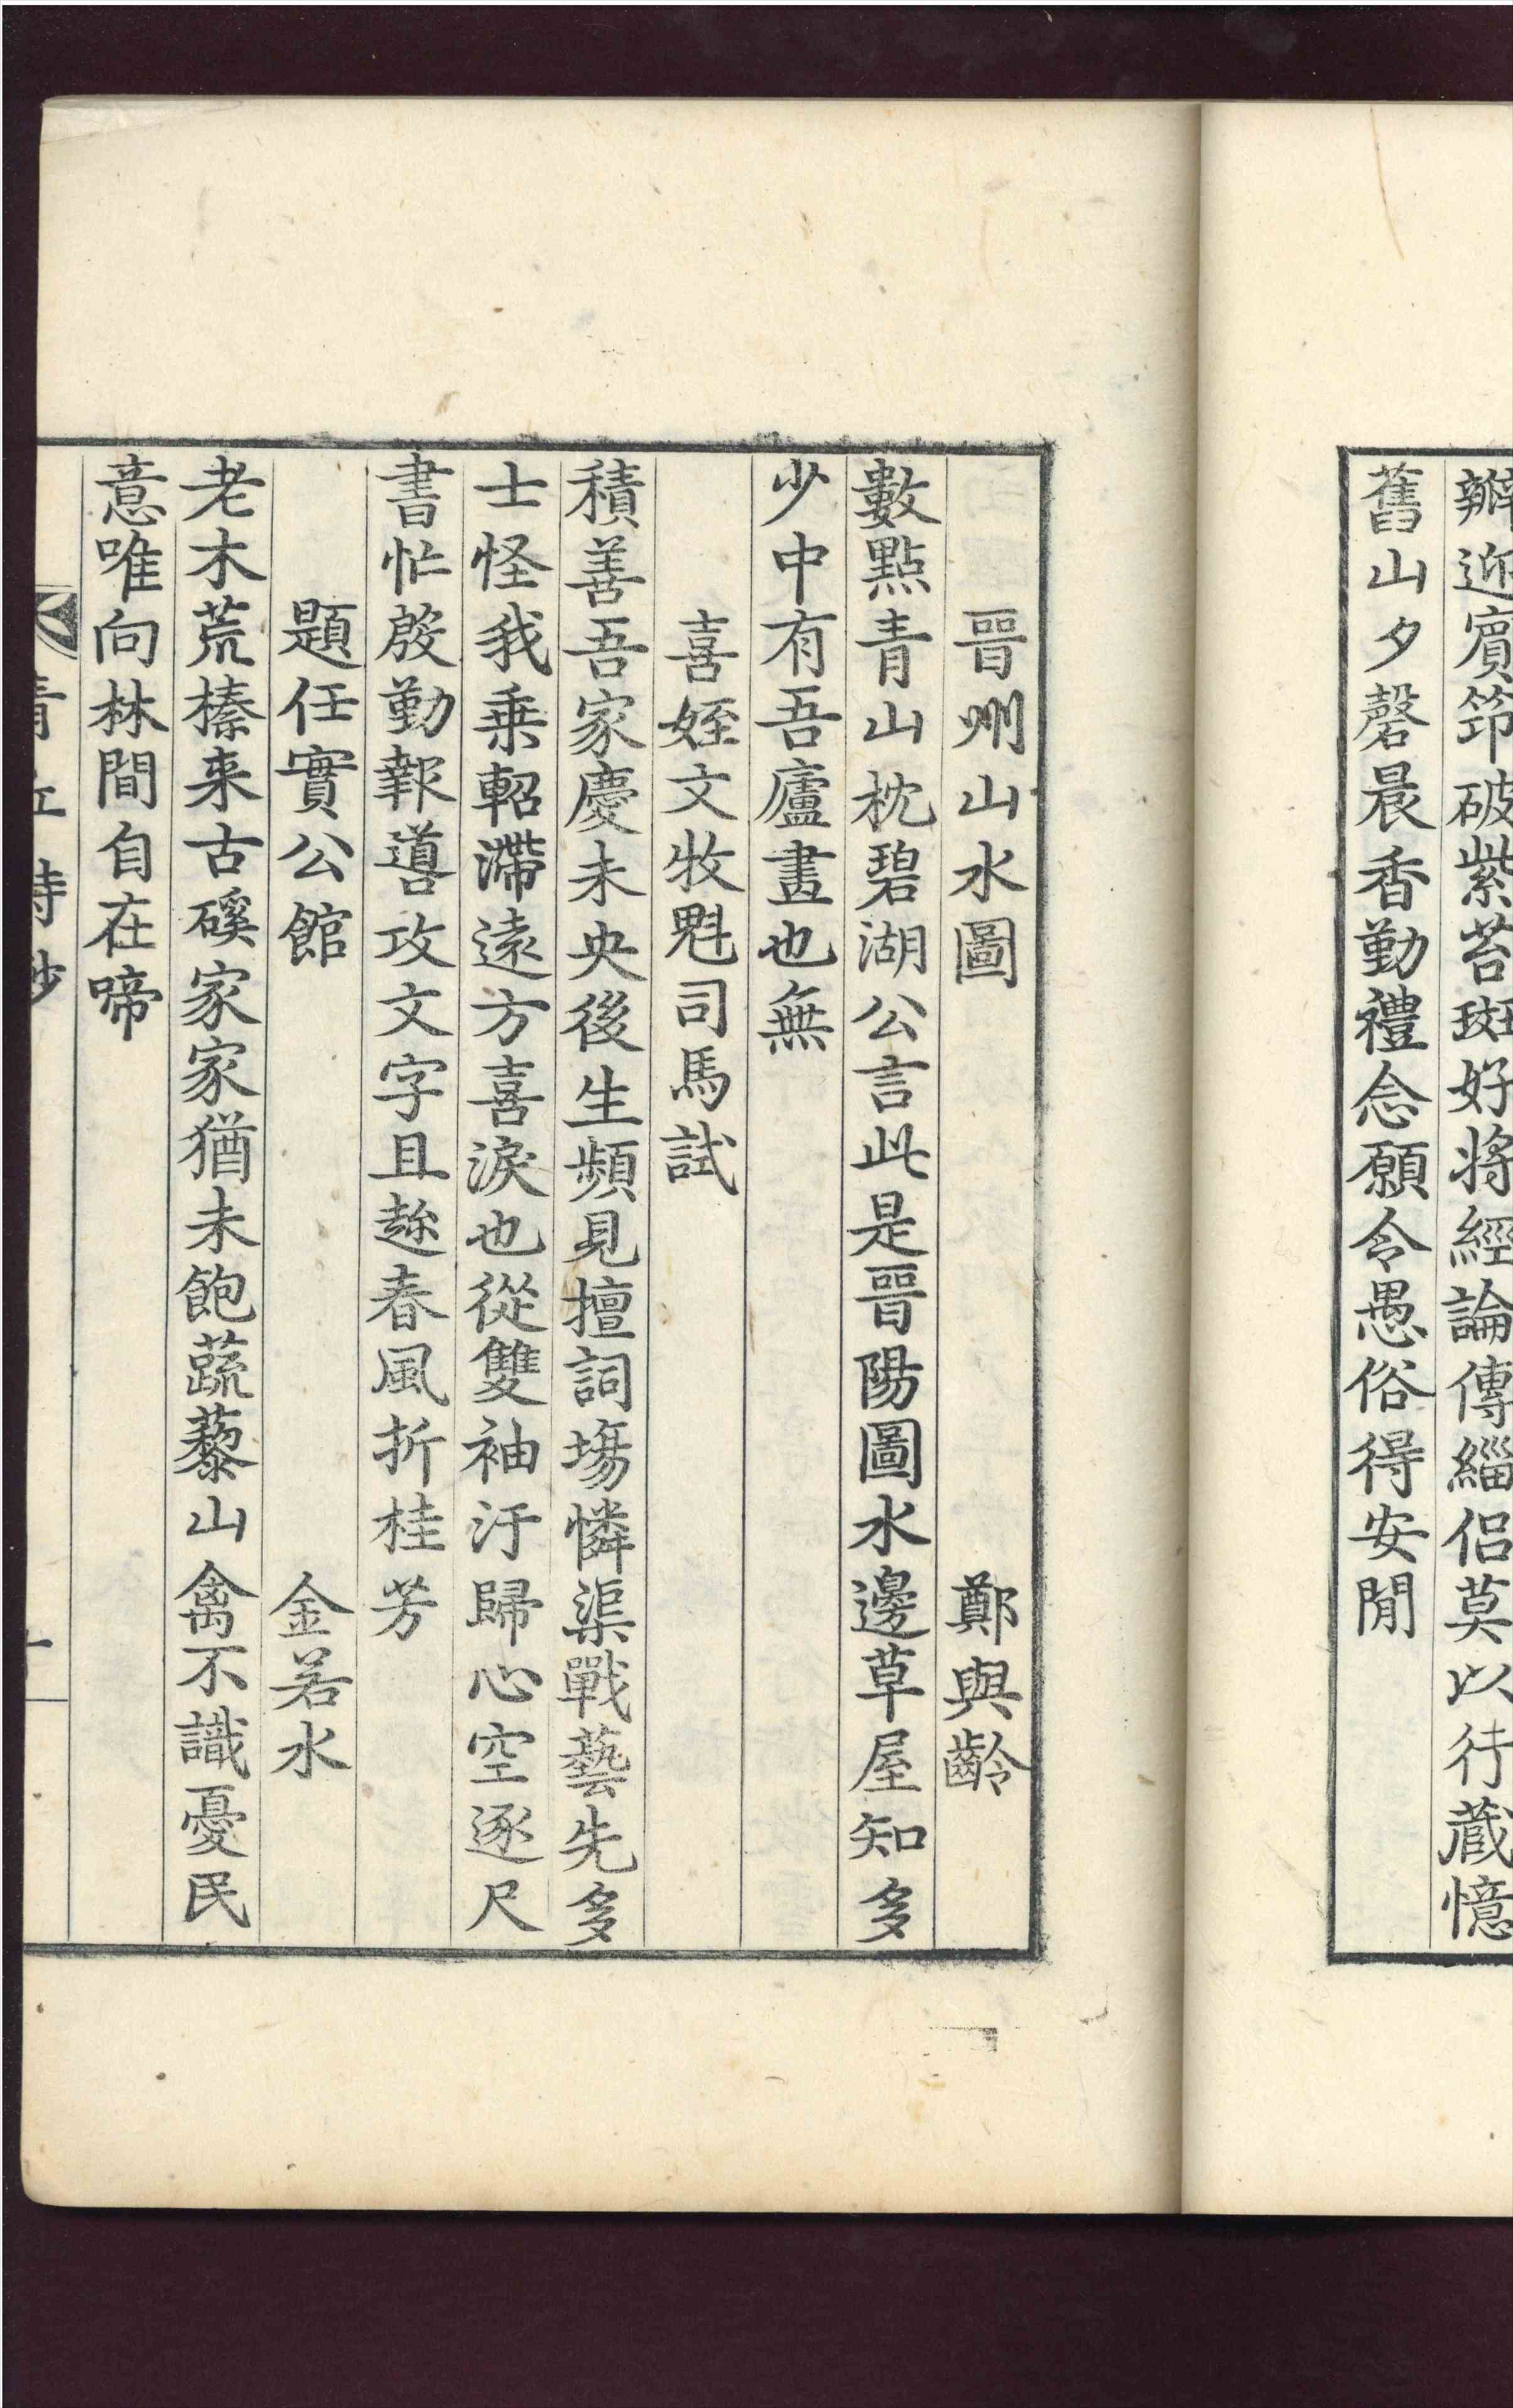 辧迎賓笻破紫苔斑好將經論傳緇侶莫以行藏憶
舊山夕磬晨香勤禮念願令愚俗得安閒
晋州山水圖 鄭與齡
數點青山枕碧湖公言此是晋陽圖水邊草屋知多
少中有吾廬畫也無
喜姪文牧魁司馬試
積善吾家慶未央後生頻見擅詞塲憐渠戰藝先多
士怪我乗軺滯遠方喜淚也從雙袖汙歸心空逐尺
書忙殷勤報噵攻文字且趂春風折桂芳
題任實公館 金若水
老木荒榛夹古磎家家猶未飽蔬藜山禽不識憂民
意唯向林間自在啼
青丘詩鈔